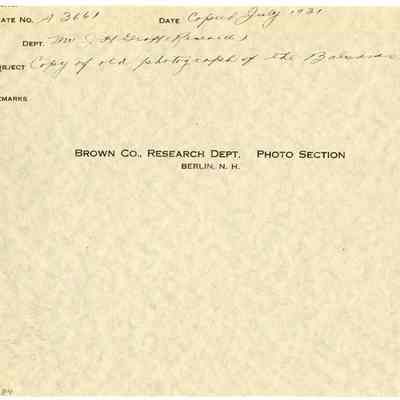 ATE No. A 3661 DATE Copied July 1931
DEPT. Mr J H Graff Research
BJECT Copy of old photograph of the
EMARKS
BROWN CO., RESEARCH DEPT. PHOTO SECTION
BERLIN, N. H.
84